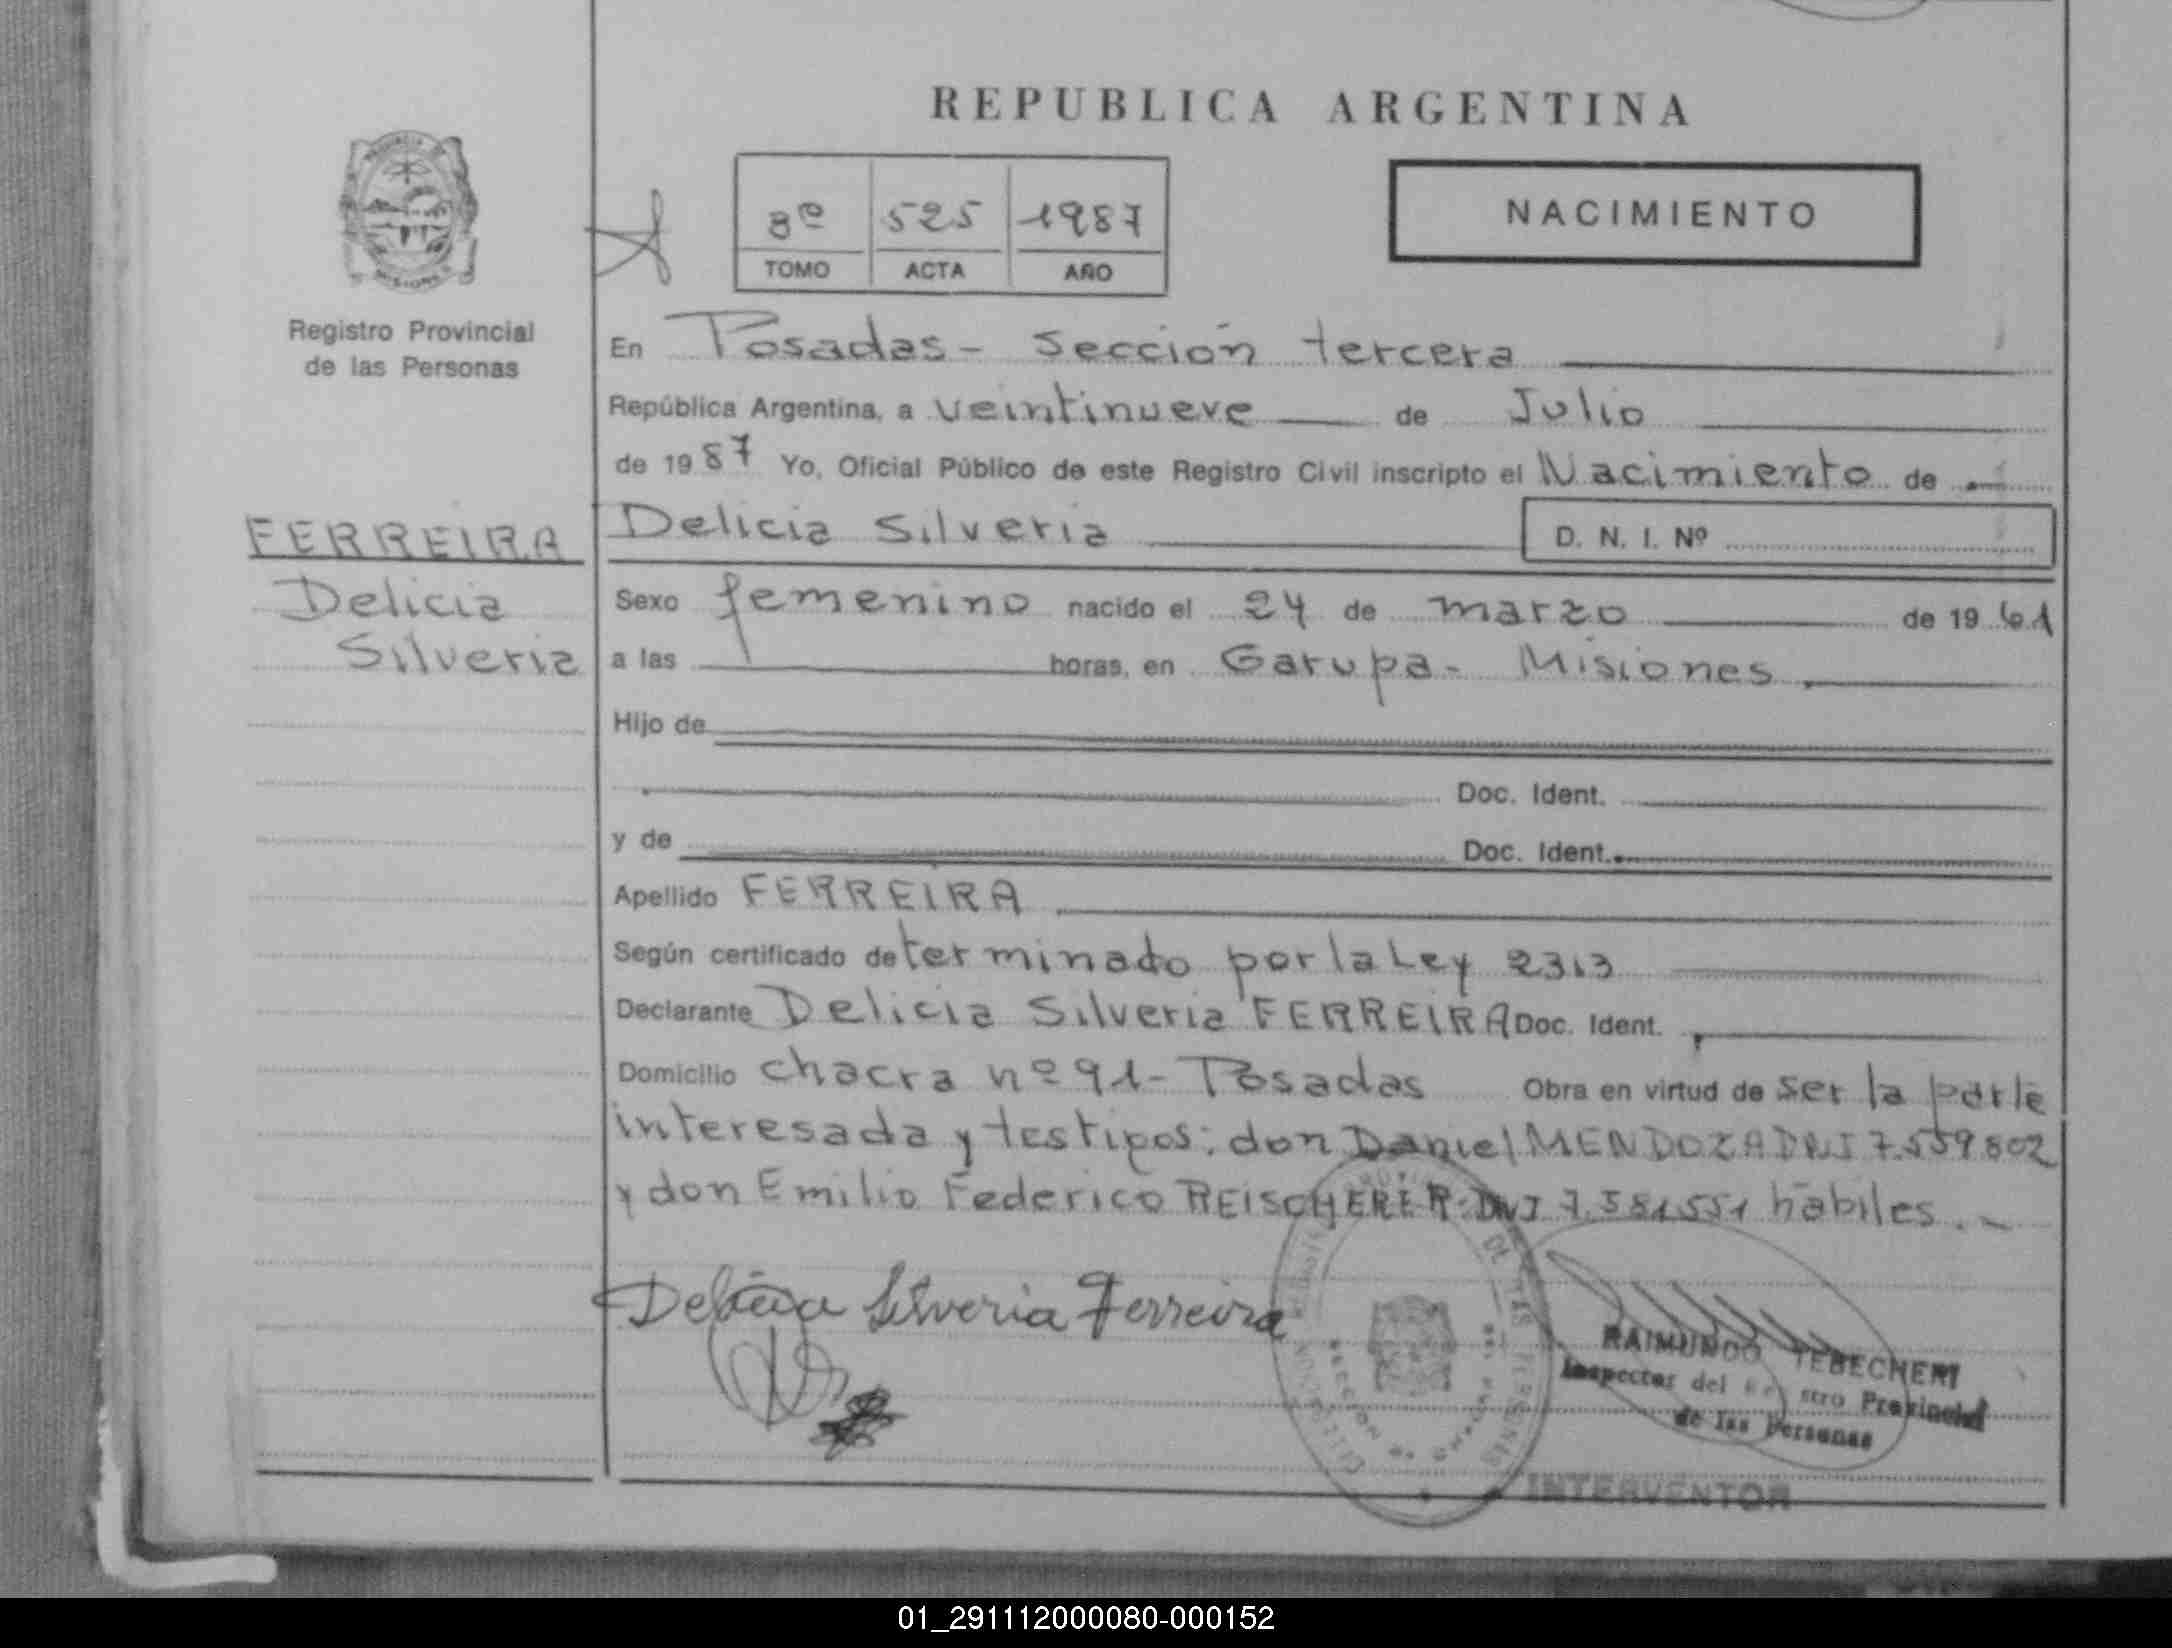 REPUBLICA ARGENTINA
NACIMIENTO
8º 525 1987
TOMO ACTA AÑO
Registro Provincial
de las Personas
En Posadas - Sección tercera
República Argentina, a veintinueve de Julio
de 1987 Yo, Oficial Público de este Registro Civil inscripto el Nacimiento de
FERREIRA
Delicia
Silveria
Delicia Silveria D. N. I. Nº
Sexo femenino nacido el 24 de marzo de 1961
a las horas, en Garupa - Misiones
Hijo de
Doc. Ident.
y de Doc. Ident.
Apellido FERREIRA
Según certificado determinado por la Ley 2313
Declarante Delicia Silveria FERREIRA Doc. Ident.
Domicilio chacra nº 91 - Posadas Obra en virtud de ser la parte
interesada y testigos: don Daniel MENDOZA DNI 7.559.802
y don Emilio Federico REISCHERER - DNI 7.581551 hábiles . -
Delicia Silveria Ferreira
RAIMUNDO TEBECHERI
Inspector del Registro Provincial
de las Personas
INTERVENTOR
01_291112000080-000152